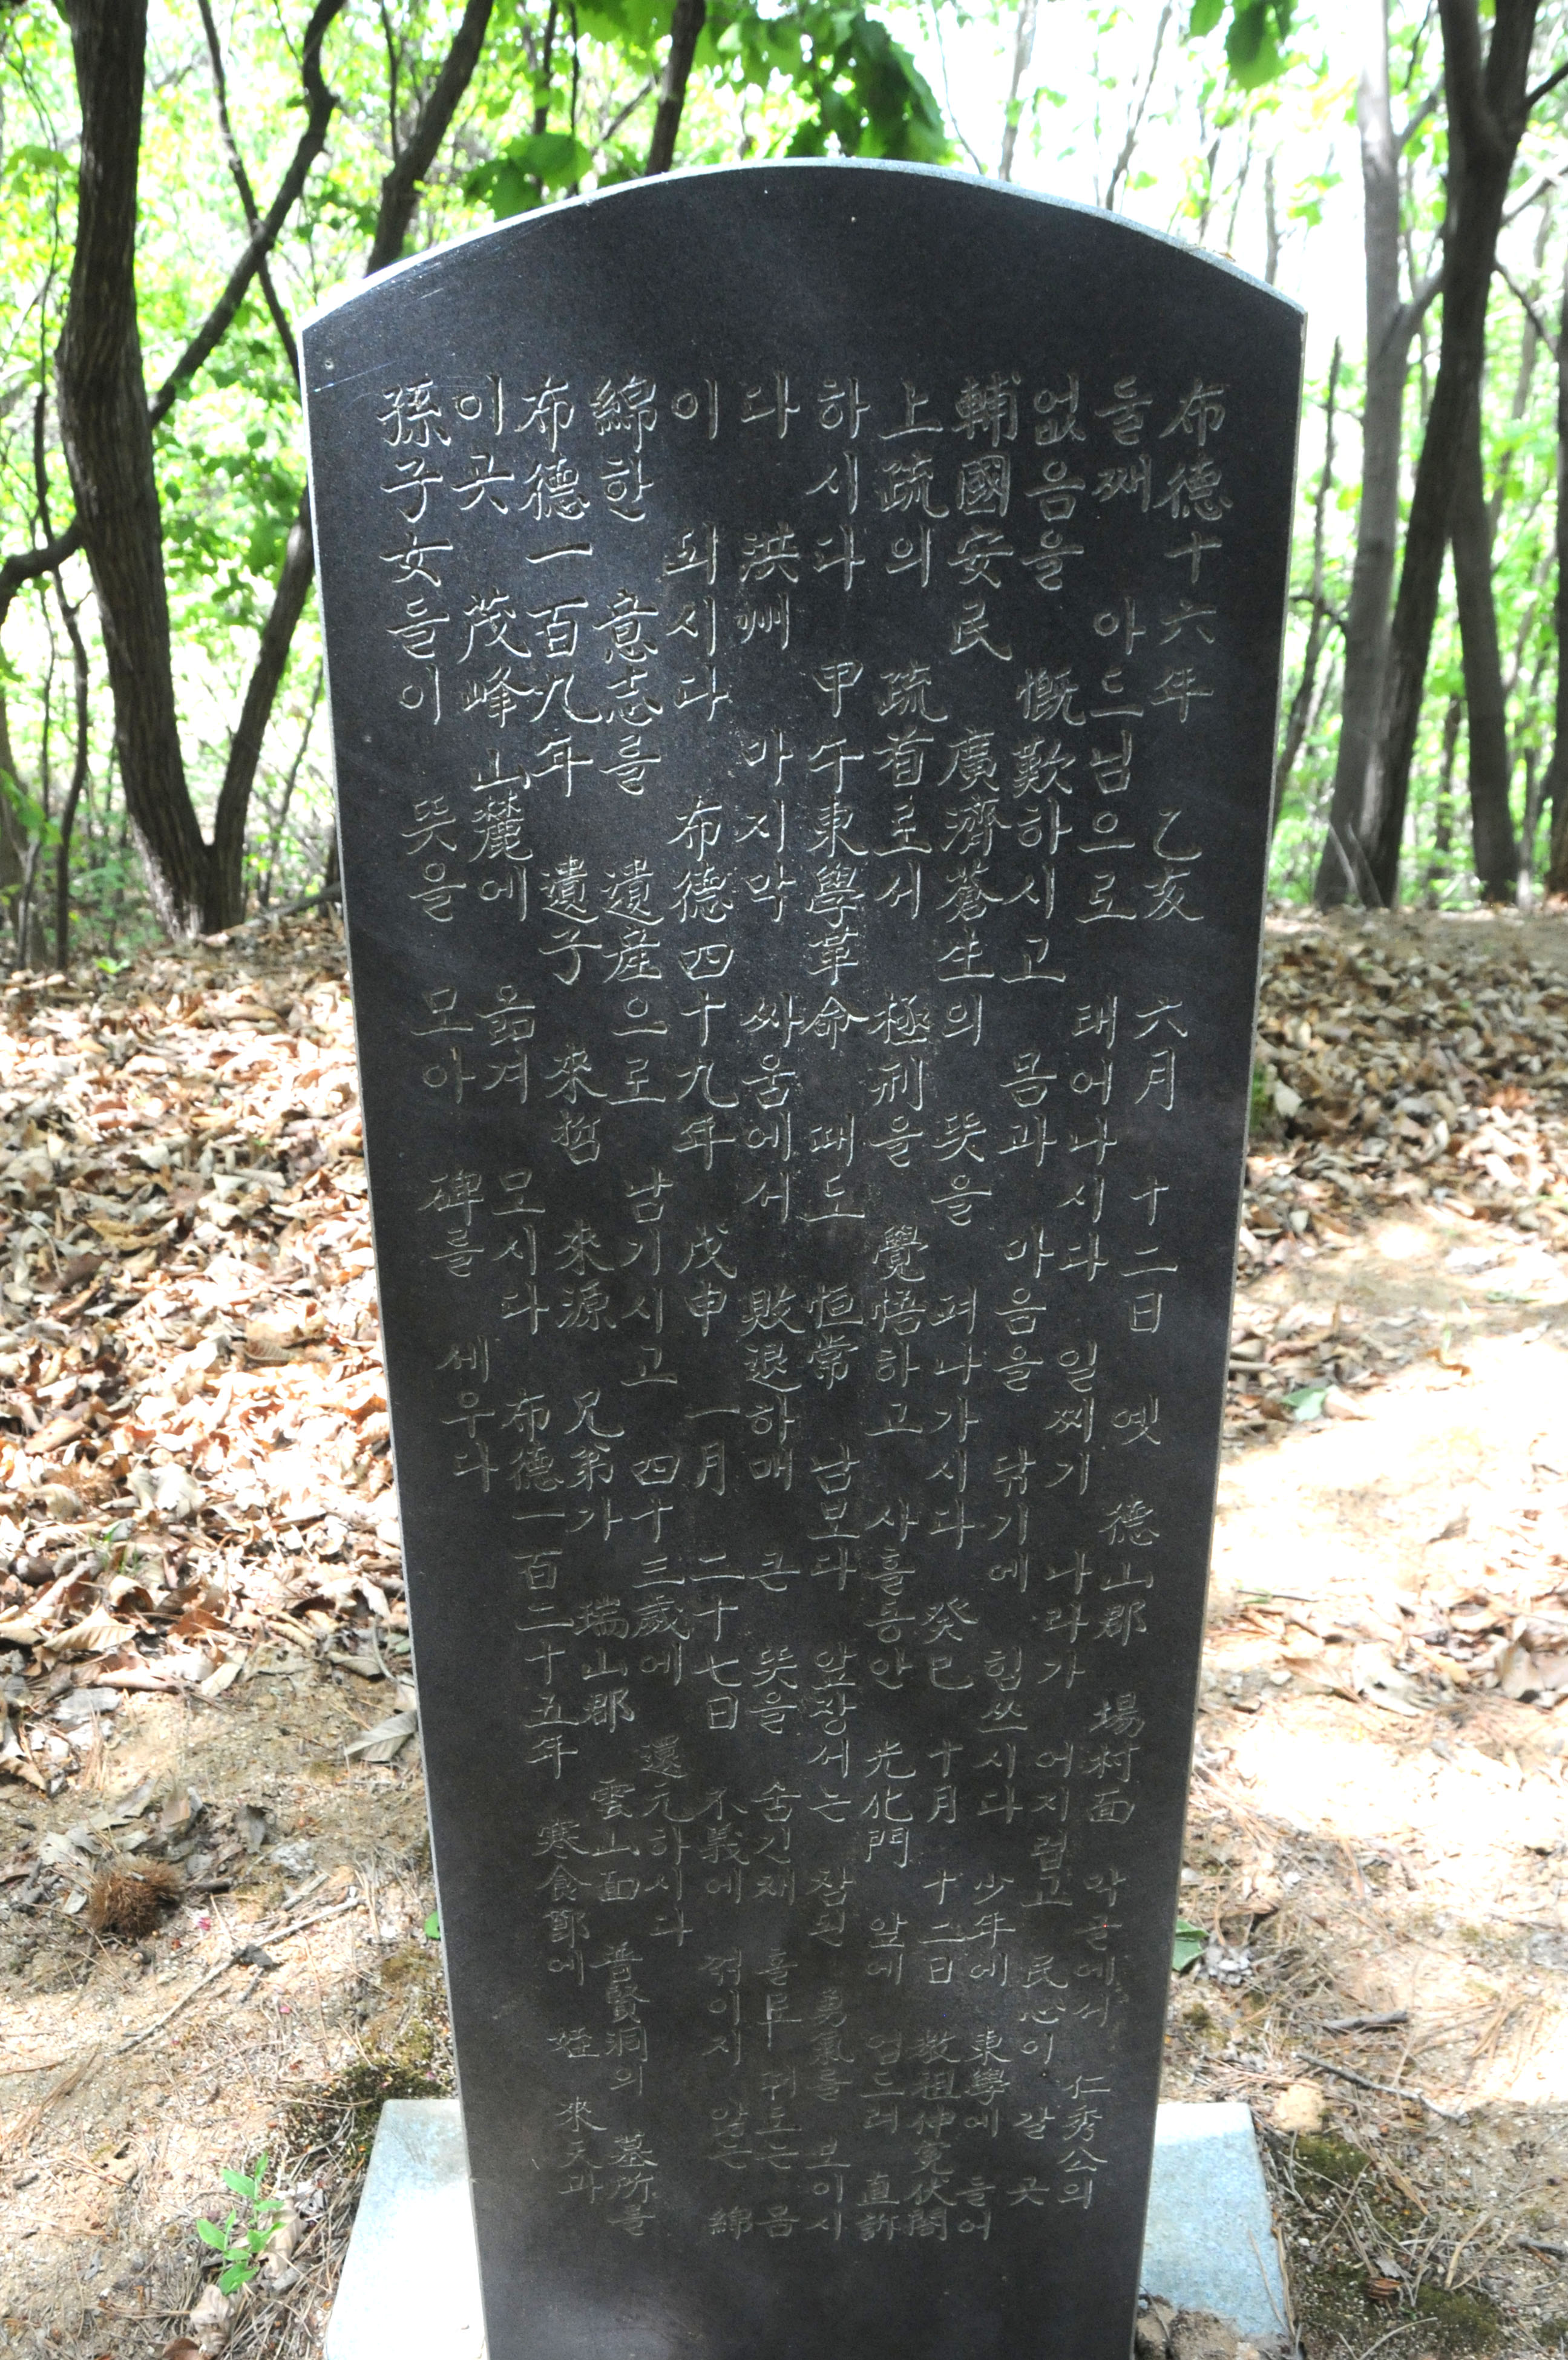 布德十六年 乙亥 六月 十二日 옛 德山郡 場村面 막은에서 仁秀公의
둘째 아드님으로 태어나시다 일찌기 나라가 어지럽고 民心이 갈 곳
없음을 慨歎하시고 몸과 마음을 닦기에 힘쓰시다 少年에 東學에 들어
輔國安民 廣濟蒼生의 뜻을 펴나가시다 癸巳 十月 十二日 敎祖伸冤伏閤
上疏의 疏首로서 極刑을 覺悟하고 사흘동안 光化門 앞에 엎드려 直訴
하시다 甲午東學革命 때도 恒常 남보다 앞장서는 참된 勇氣를 보이시
다 洪州 마지막 싸움에서 敗退하매 큰 뜻을 숨긴채 홀로 뛰는 몸
이 되시다 布德四十九年 戊申 一月 二十七日 不義에 꺾이지 않는 綿
綿한 意志를 遺産으로 남기시고 四十三歲에 還元하시다
布德一百九年 遺子 來哲 來源 兄弟가 瑞山郡 雲山面 普賢洞의 墓所를
이곳 茂峰山麓에 옮겨 모시다 布德一百二十五年 寒食節에 姪 來天과
孫子女들이 뜻을 모아 碑를 세우다